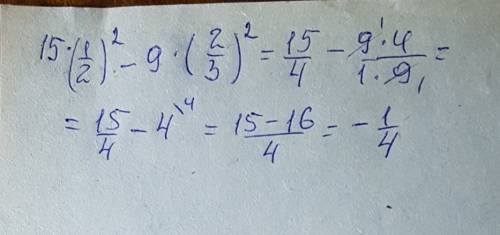 15·(1/2)² - 9·(2/3)² = 15/4 - 9¹·4/1·9₁ =
= 15/4 - 4\⁴ = 15-16/4 = -1/4